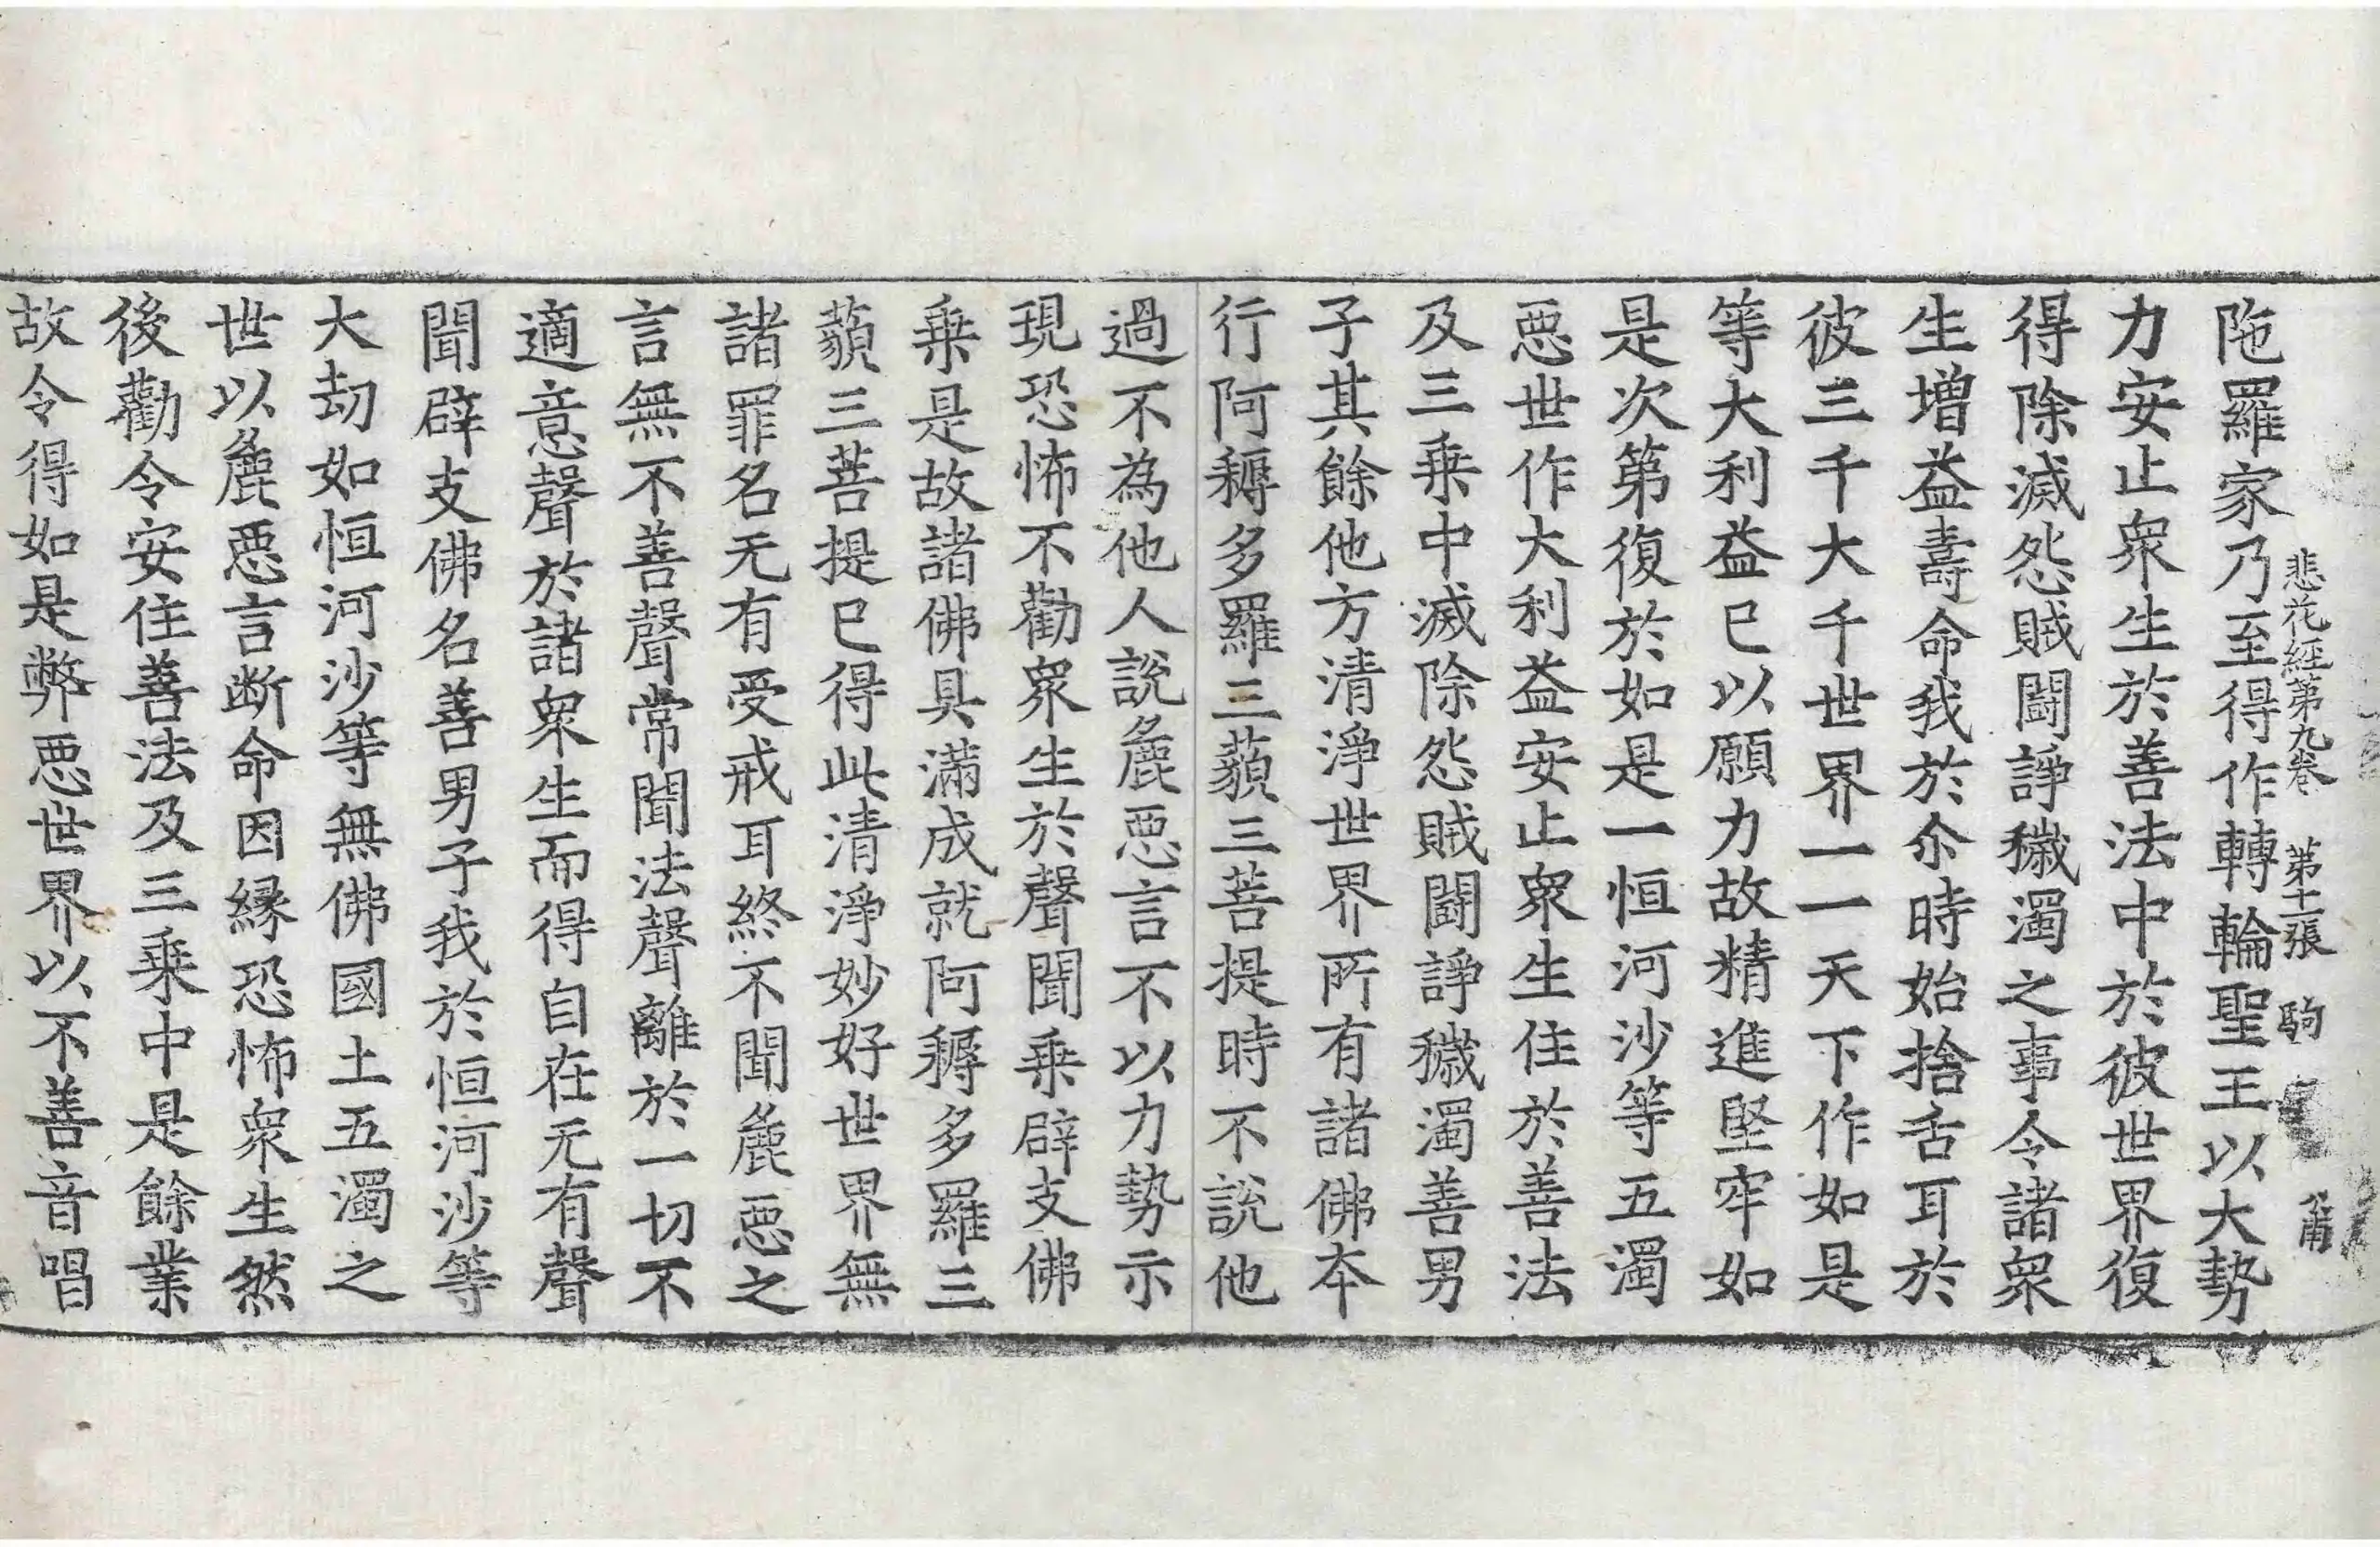 悲花経第九卷 第十二張 駒
陁羅家乃至得作轉輪聖王以大勢
力安止衆生於善法中於彼世界復
得除滅怨賊鬪諍穢濁之事令諸衆
生增益壽命我於尒時始捨舌耳於
彼三千大千世界一一天下作如是
等大利益已以願力故精進堅牢如
是次第復於如是一恒河沙等五濁
惡世作大利益安止衆生住於善法
及三乗中滅除怨賊鬪諍穢濁善男
子其餘他方清淨世界所有諸佛本
行阿耨多羅三藐三菩提時不說他
過不為他人說麁惡言不以力勢示
現恐怖不勸衆生於聲聞乗辟支佛
乗是故諸佛具滿成就阿耨多羅三
藐三菩提已得此清淨妙好世界無
諸罪名无有受戒耳終不聞麁惡之
言無不善聲常聞法聲離於一切不
適意聲於諸衆生而得自在无有聲
聞辟支佛名善男子我於恒河沙等
大劫如恒河沙等無佛國土五濁之
世以麁惡言断命因縁恐怖衆生然
後勸令安住善法及三乗中是餘業
故令得如是弊惡世界以不善音唱